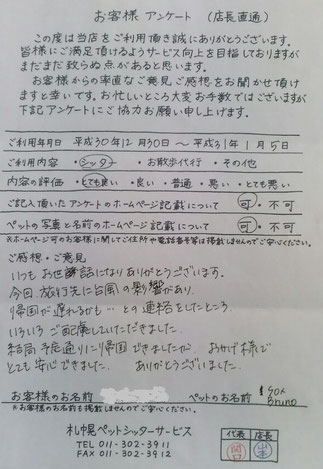 お客様 アンケート （店長直通）
この度は当店をご利用頂き誠にありがとうございます。
皆様にご満足頂けるようサービス向上を目指しておりますが
まだまだ致らぬ点があると思います。
お客様からの率直なご意見、ご感想をお聞かせ頂け
ますと幸いです。お忙しいところ大変お手数ではございますが
下記アンケートにご協力お願い申し上げます。
ご利用年月日 平成30年12月30日～平成31年1月5日
ご利用内容 シッター ・お散歩代行 ・その他
内容の評価 ・とても良い ・良い ・普通 ・悪い ・とても悪い
ご記入頂いたアンケートのホームページ記載について 可・不可
ペットの写真と名前のホームページ記載について 可・不可
※ホームページ可のお客様に関してご住所や電話番号等は掲載しませんのでご安心ください。
ご感想・ご意見
いつもお世話になりありがとうございます。
今回、旅行先に台風の影響があり、
帰国が遅れるかも…との連絡をしたところ
いろいろご配慮していただきました。
結局予定通りに帰国できましたが おかげ様で
とても安心できました。 ありがとうございました。
お客様のお名前 ペットのお名前
Bruno
※お客様のお名前も掲載しませんのでご安心ください。
札幌ペットシッターサービス
TEL 011-302-3911
FAX 011-302-3912
代表 店長
関口 山本